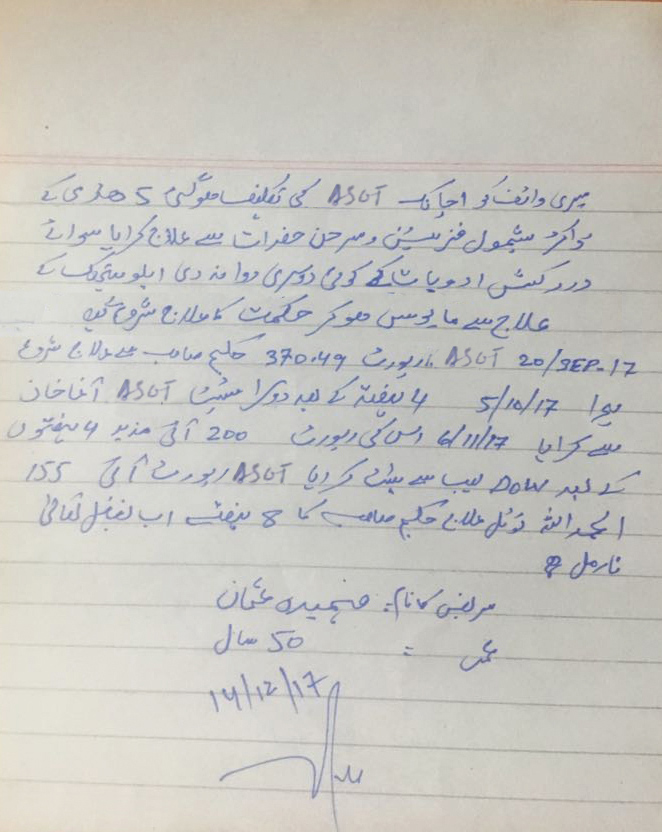 میری وائف کو اچانک ASOT کی تکلیف ہوگئی 5 ھڈی کے
ڈاکٹر بشمول فزیشن و سرجن حضرات سے علاج کرایا سوائے
درد کش ادویات کے کوئی دوسری دوا نہ دی ایلوپیتھک کے
علاج سے مایوس ہوکر حکمت کا علاج شروع کیا
20/SEP-17 ASOT رپورٹ 370.49 حکیم صاحب سے علاج شروع
ہوا 5/10/17 4 ہفتہ کے بعد دوسرا ٹیسٹ ASOT آغاخان
سے کرایا 6/11/17 اس کی رپورٹ 200 آئی مزید 4 ہفتوں
کے بعد DOW لیب سے ٹیسٹ کرایا ASOT رپورٹ آئی 155
الحمداللہ ٹوٹل علاج حکیم صاحب کا 8 ہفتے اب بفضل تعالیٰ
نارمل
مریض کا نام: فہمیدہ عثمان
عمر = 50 سال
14/12/17